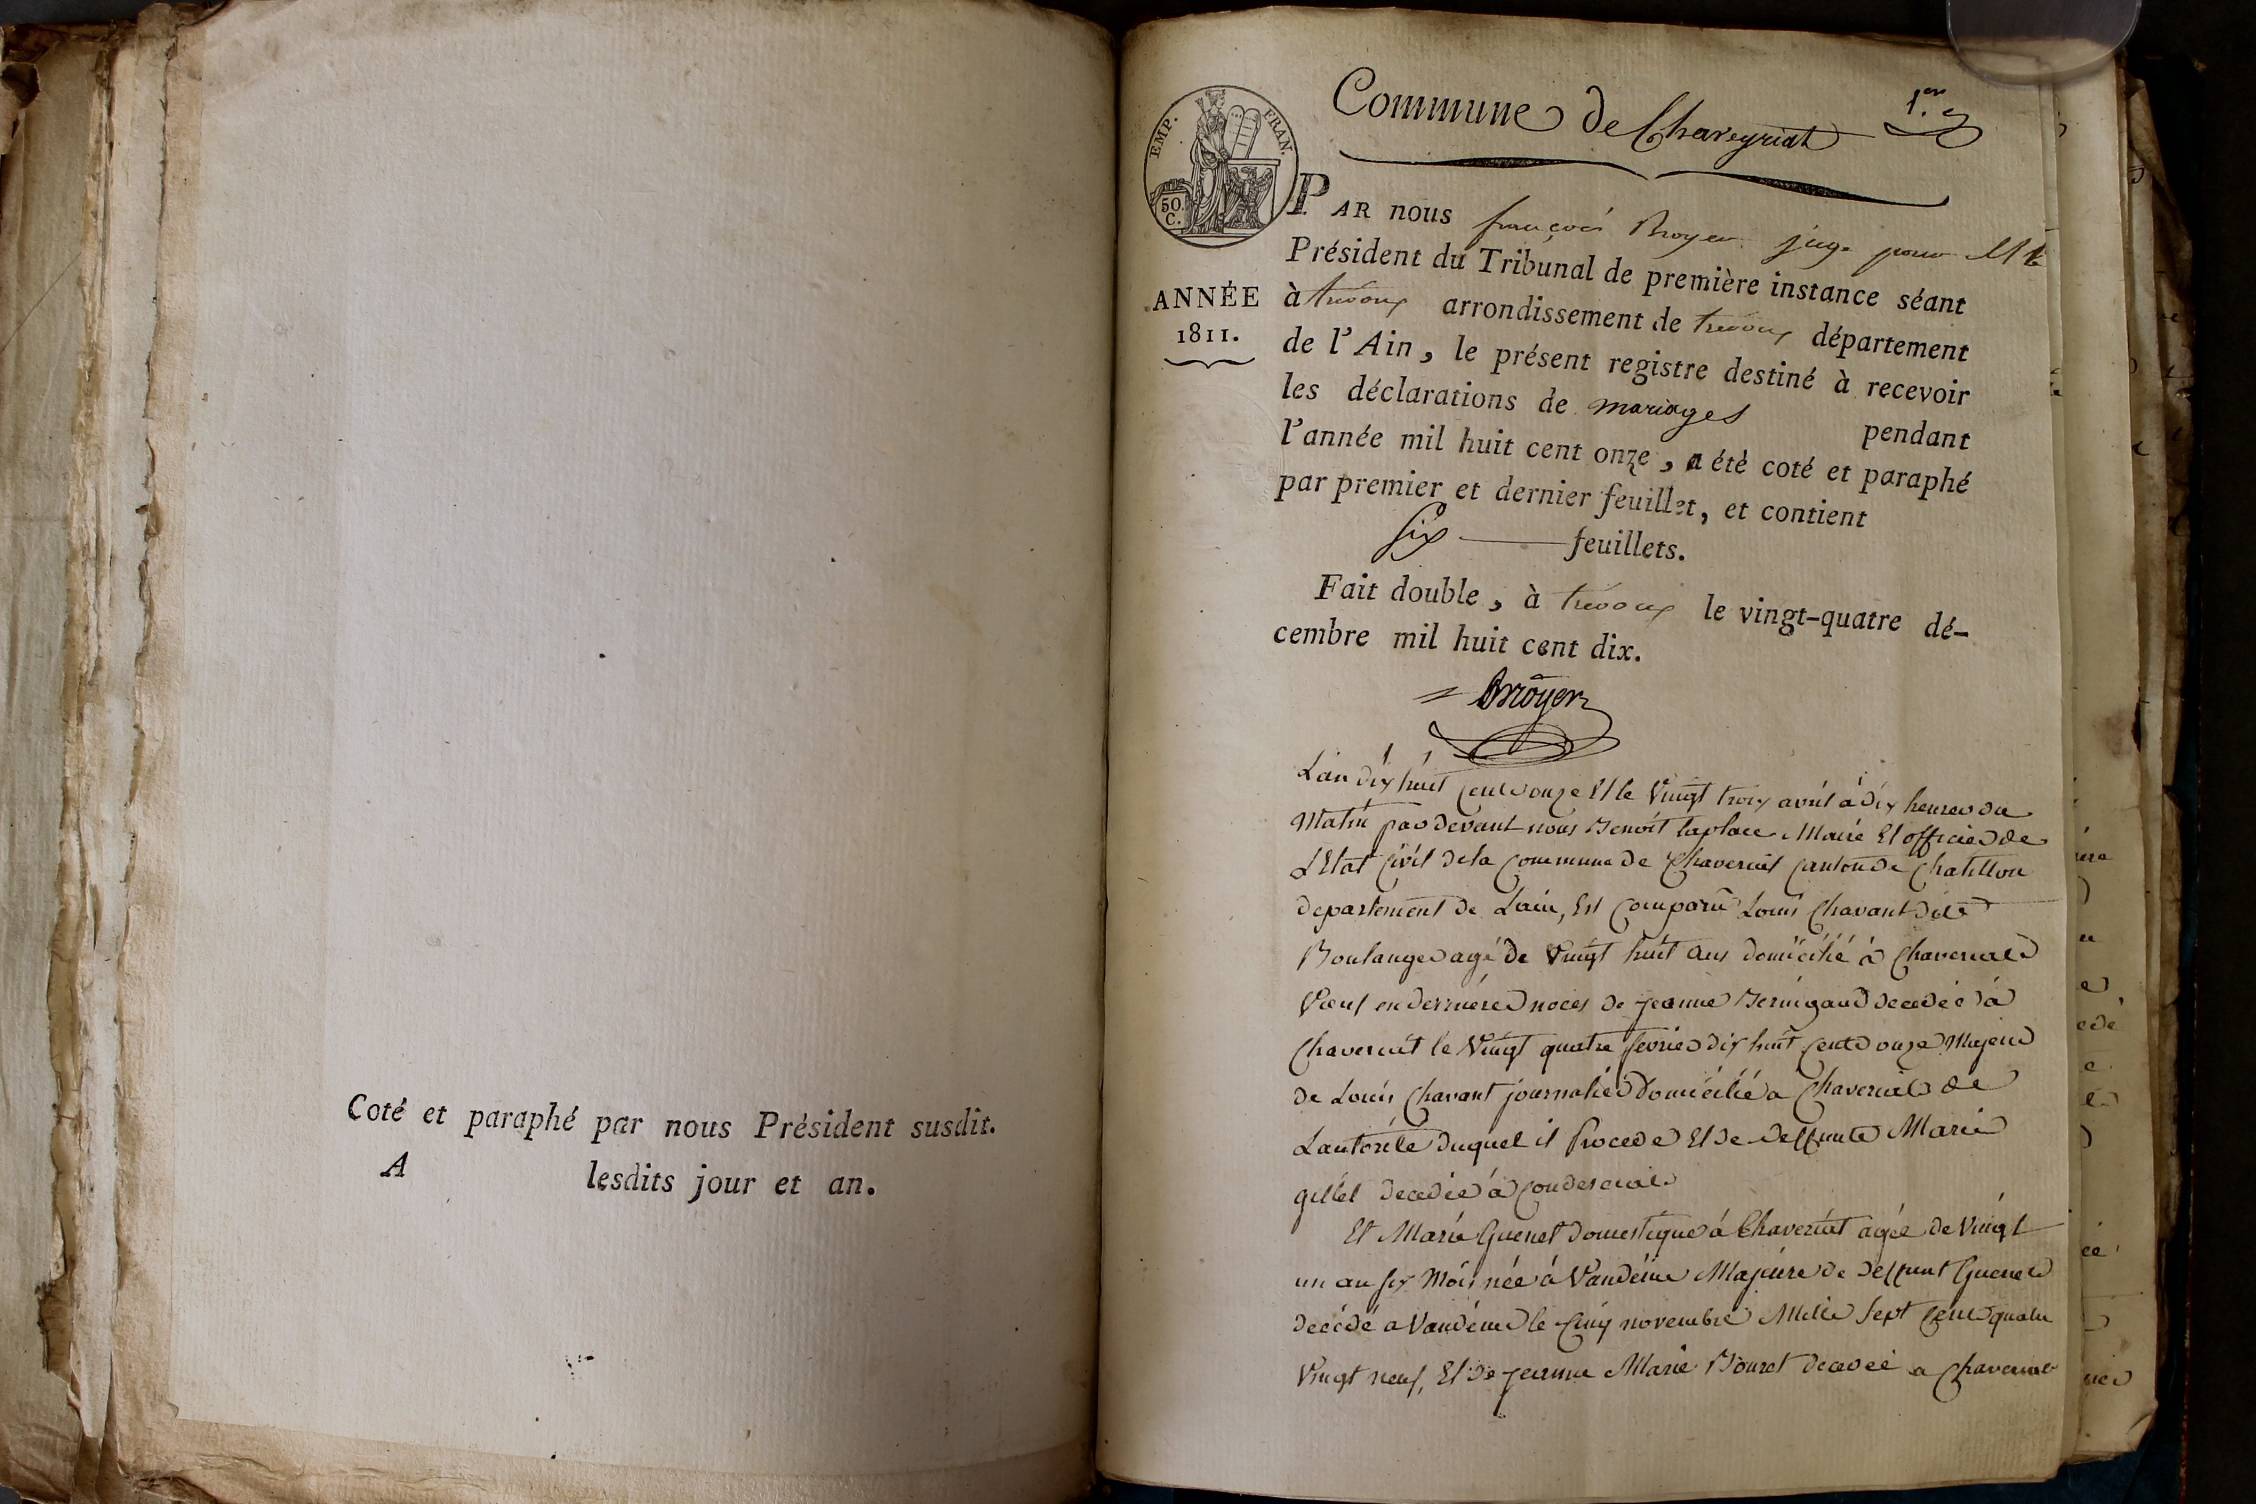 Coté et paraphé par nous Président susdit.
A lesdits jour et an.
Commune de Chaveyriat
1.er
EMP. FRAN.
50. C.
ANNÉE
1811.
PAR nous françois Royer juge pour M le
Président du Tribunal de première instance séant
à trevoux arrondissement de trevoux département
de l'Ain, le présent registre destiné à recevoir
les déclarations de mariages pendant
l'année mil huit cent onze, a été coté et paraphé
par premier et dernier feuillet, et contient
six feuillets.
Fait double, à trevoux le vingt-quatre dé-
cembre mil huit cent dix.
Lan dix huit cent onze Et le Vingt trois avril à dix heures du
Matin par devant nous Benoit laplace Maire Et officier de
L'Etat Civil de la Commune de Chaveriat Canton de Chatillon
departement de Lain, Est Comparu Louis Chavant
Boulanger agé de Vingt huit ans domicilié à Chaveriat
Veuf en derniere noces de jeanne decedée à
Chaveriat le Vingt quatre fevrier dix huit Cent onze Majeur
de Louis Chavant journalier domicilié a Chaveriat de
Lautorité duquel il Procede Et de deffunte Marie
decedée à
Et Marie Guenet domestique à Chaveriat agée de Vingt
un an six Mois née à Vandeine Majeure de deffunt Guenet
décédé a Vandeine le Cinq novembre Mille Sept Cent quatre
Vingt neuf, Et de jeanne Marie Bouret decedée a Chaveriat